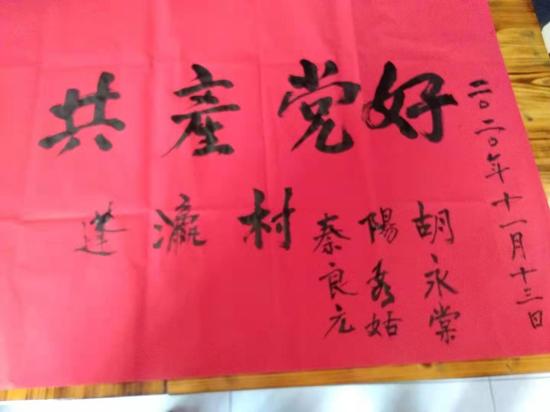 共產党好
蓮漉村
胡永棠
陽秀姑
秦良元
二〇二〇年十一月十三日